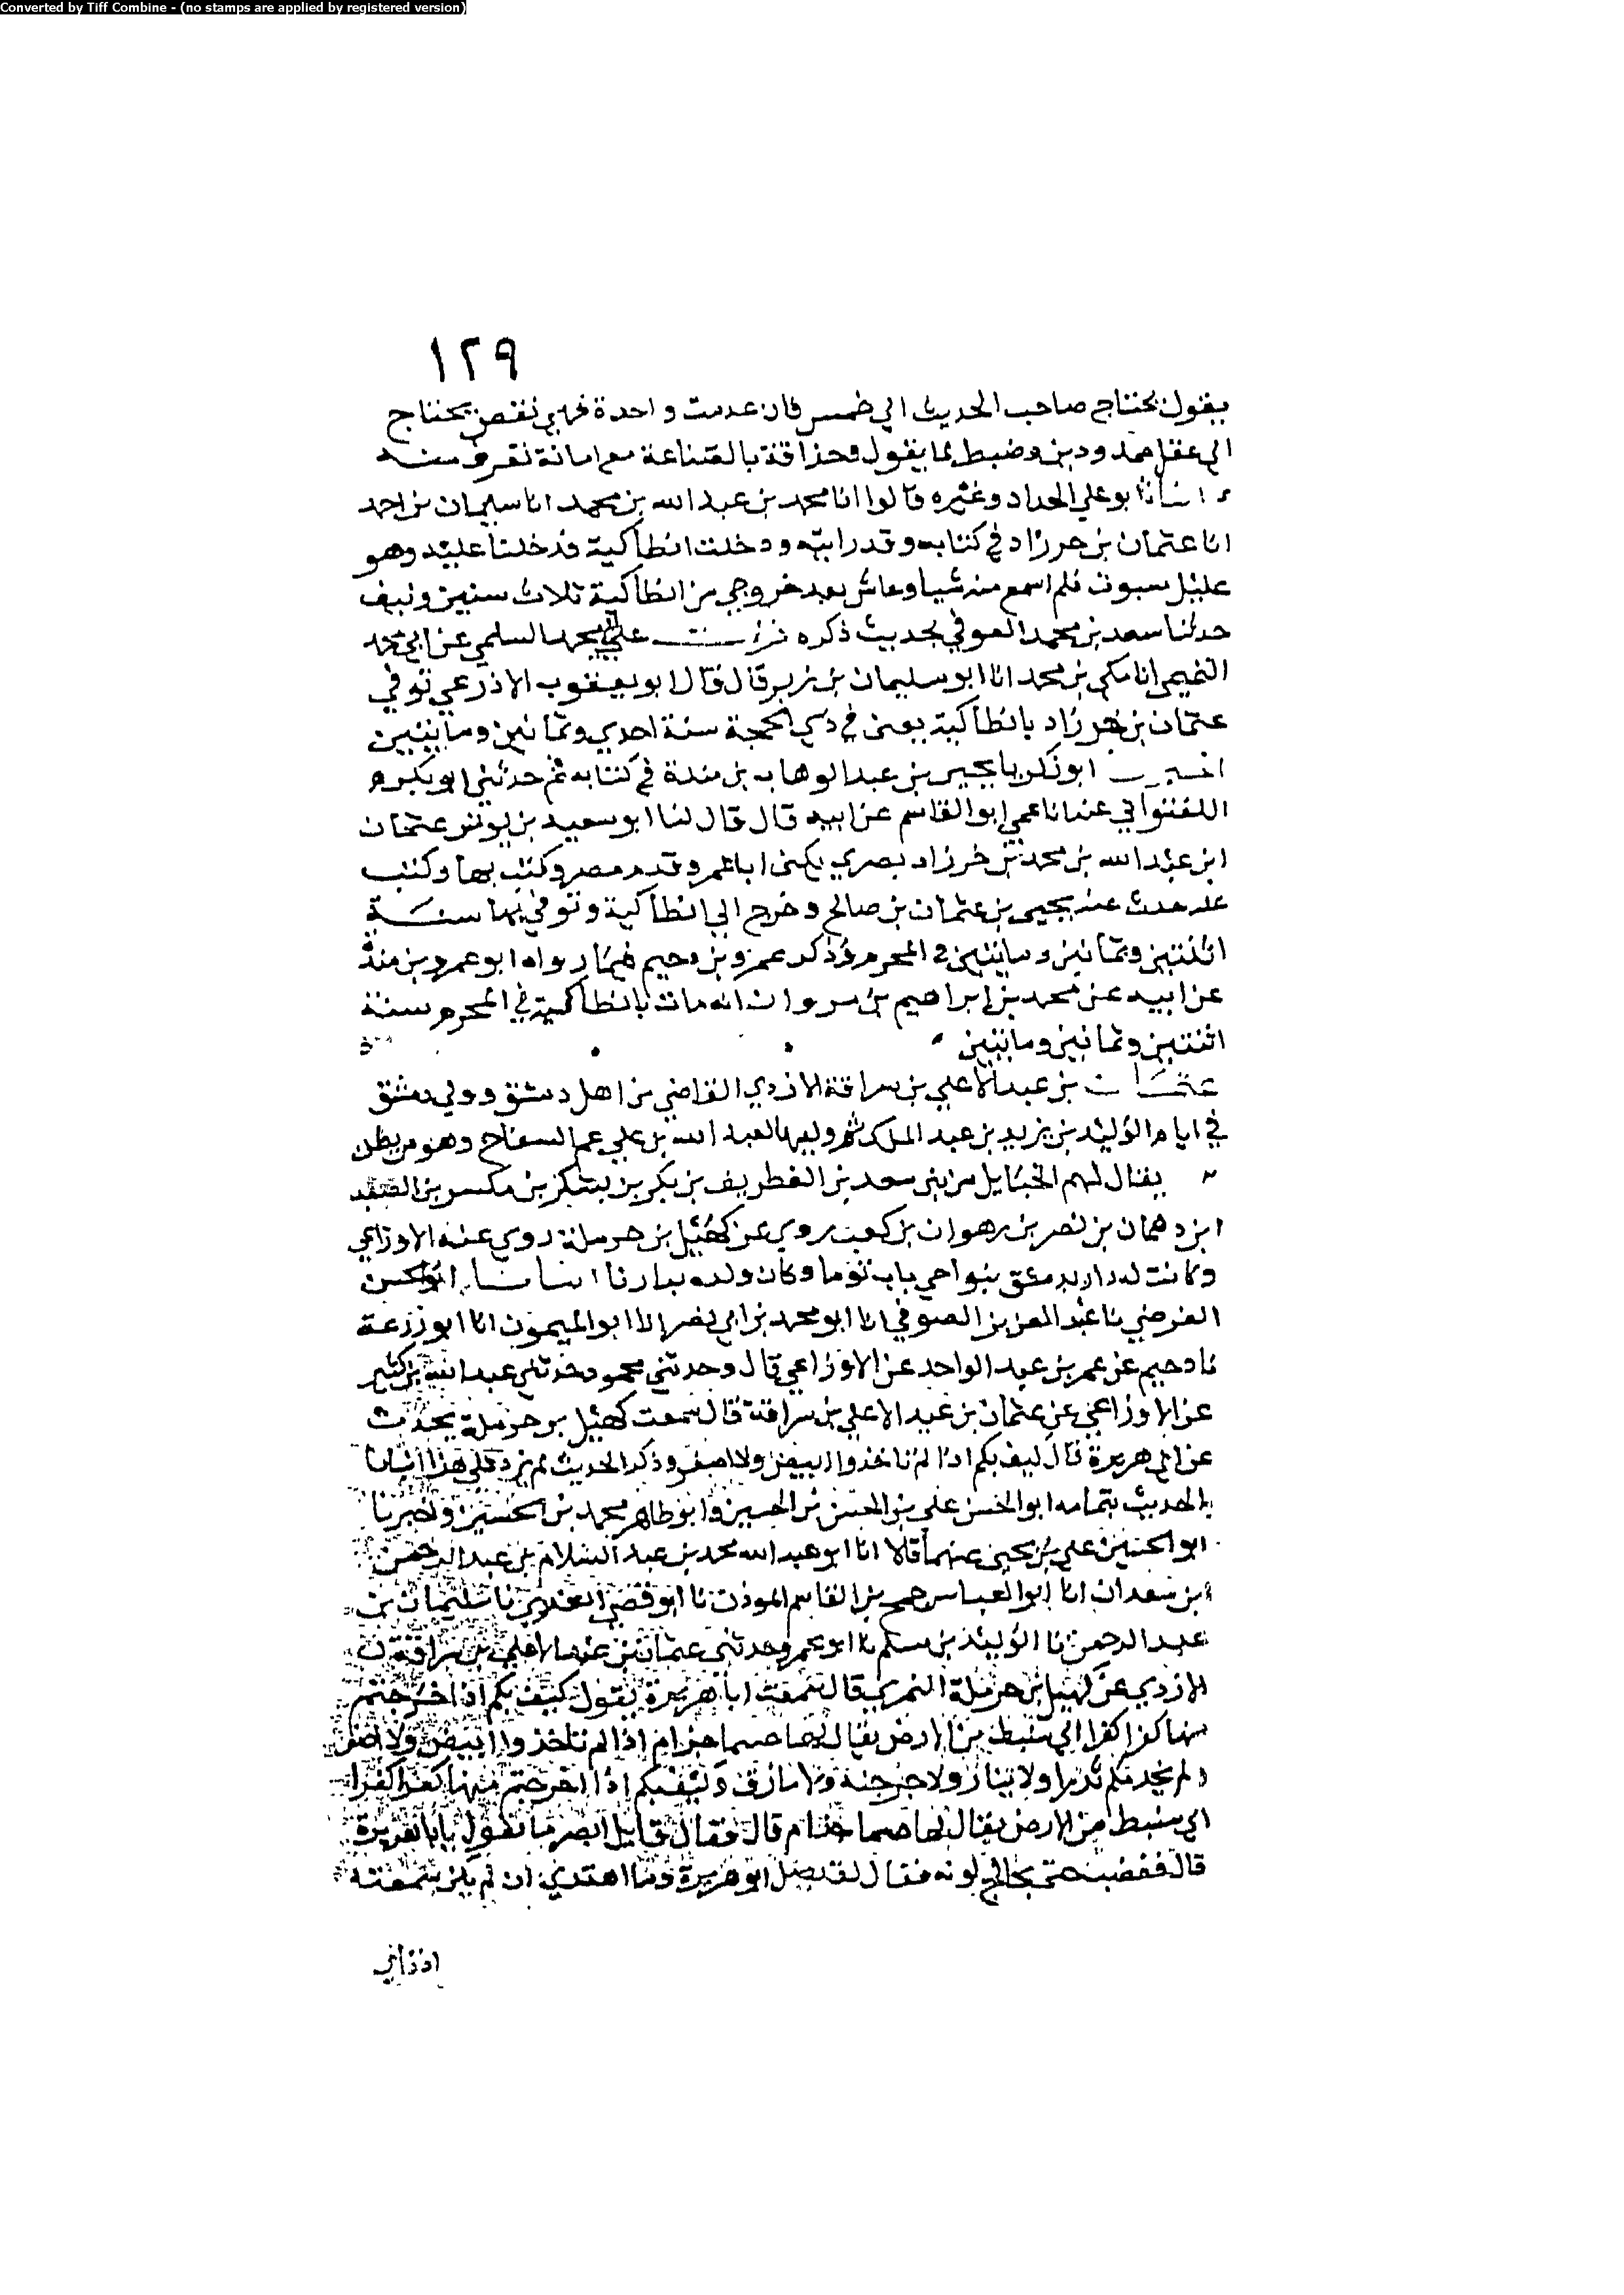 Converted by Tiff Combine - (no stamps are applied by registered version)
١٢٩
يقول يحتاج صاحب الحديث الي خمس فان عدمت واحدة فهي نقص يحتاج
الي عقل جيد ودين وضبط لما يقول وحذاقة بالصناعة مع امانة تعرف منه
انبانا ابو علي الحداد وغيره قالوا انا محمد بن عبد الله بن محمد انا سليمان بن احمد
انا عثمان بن خرزاد في كتابه وقد رايته ودخلت انطاكية فدخلنا عليه وهو
عليل مسبوت فلم اسمع منه شيا وعاش بعد خروجي من انطاكية ثلاث سنين ونيف
حدثنا سعد بن محمد العوفي بحديث ذكره قرات علي ابي محمد السلمي عن ابي محمد
التميمي انا مكي بن محمد انا ابو سليمان بن زبر قال قال ابو يعقوب الاذرعي توفي
عثمان بن خرزاد بانطاكية يعني في ذي الحجة سنة احدي وثمانين ومايتين
اخبرنا ابو زكريا يحيى بن عبد الوهاب بن مندة في كتابه ثم حدثني ابو بكر
اللفتواني عنه انا عمي ابو القاسم عن ابيه قال قال لنا ابو سعيد بن يونس عثمان
ابن عبد الله بن محمد بن خرزاد بصري يكنى ابا عمرو قدم مصر وكتب بها وكتب
عنه حدث عنه يحيى بن عثمان بن صالح وخرج الي انطاكية وتوفي بها سنة
اثنتين وثمانين ومايتين في المحرم وذكر عمرو بن دحيم فيما رواه ابو عمرو بن مندة
عن ابيه عن محمد بن ابراهيم بن مروان انه مات بانطاكية في المحرم سنة
اثنتين وثمانين ومايتين
عثمان بن عبد الاعلي بن سراقة الازدي القاضي من اهل دمشق وولي دمشق
في ايام الوليد بن يزيد بن عبد الملك ثم وليها لعبد الله بن علي عم السفاح وهو من بطن
يقال لهم الخبايل من بني سعد بن الغطريف بن بكر بن يشكر بن مكسر بن الصعب
ابن دهمان بن نصر بن رهوان بن كعب روي عن كهيل بن حرملة روي عنه الاوزاعي
وكانت له دار بدمشق بنواحي باب توما وكان ولده بدارنا انبانا ابو الحسن
الفرضي نا عبد العزيز الصوفي انا ابو محمد بن ابي نصر انا ابو الميمون انا ابو زرعة
نا دحيم عن عمر بن عبد الواحد عن الاوزاعي قال وحدثني محمود حدثني عبد الله بن كثير
عن الاوزاعي عن عثمان بن عبد الاعلي بن سراقة قال سمعت كهيل بن حرملة يحدث
عن ابي هريرة قال كيف بكم اذا لم تاخذوا ابيض ولا اصفر وذكر الحديث لم يزد علي هذا انبانا
بالحديث بتمامه ابو الحسن علي بن الحسن بن الحسين وابو طاهر محمد بن الحسين واخبرنا
ابو الحسين علي بن يحيى عنهما قالا انا ابو عبد الله محمد بن عبد السلام بن عبد الرحمن
ابن سعدان انا ابو العباس جمح بن القاسم الموذن نا ابو قصي العذري نا سليمان بن
عبد الرحمن نا الوليد بن مسلم نا ابو عمرو حدثني عثمان بن عبد الاعلي بن سراقة
الازدي عن كهيل بن حرملة النمري قال سمعت ابا هريرة يقول كيف بكم اذا اخرجتم
منها كفرا كفرا الي سنبط من الارض يقال لها حسما جذام اذا لم تاخذوا ابيض ولا اصفر
ولم يخدمكم ولا ولا جرجنة ولا مازق وكيف بكم اذا اخرجتم منها كفرا كفرا
الي سنبط من الارض يقال لها حسما جذام قال فقال قايل ابصر ما تقول يا ابا هريرة
قال فغضب حتى تخالج لونه فقال لقد ضل ابو هريرة وما اهتدي ان لم يكن سمعته
اذناي